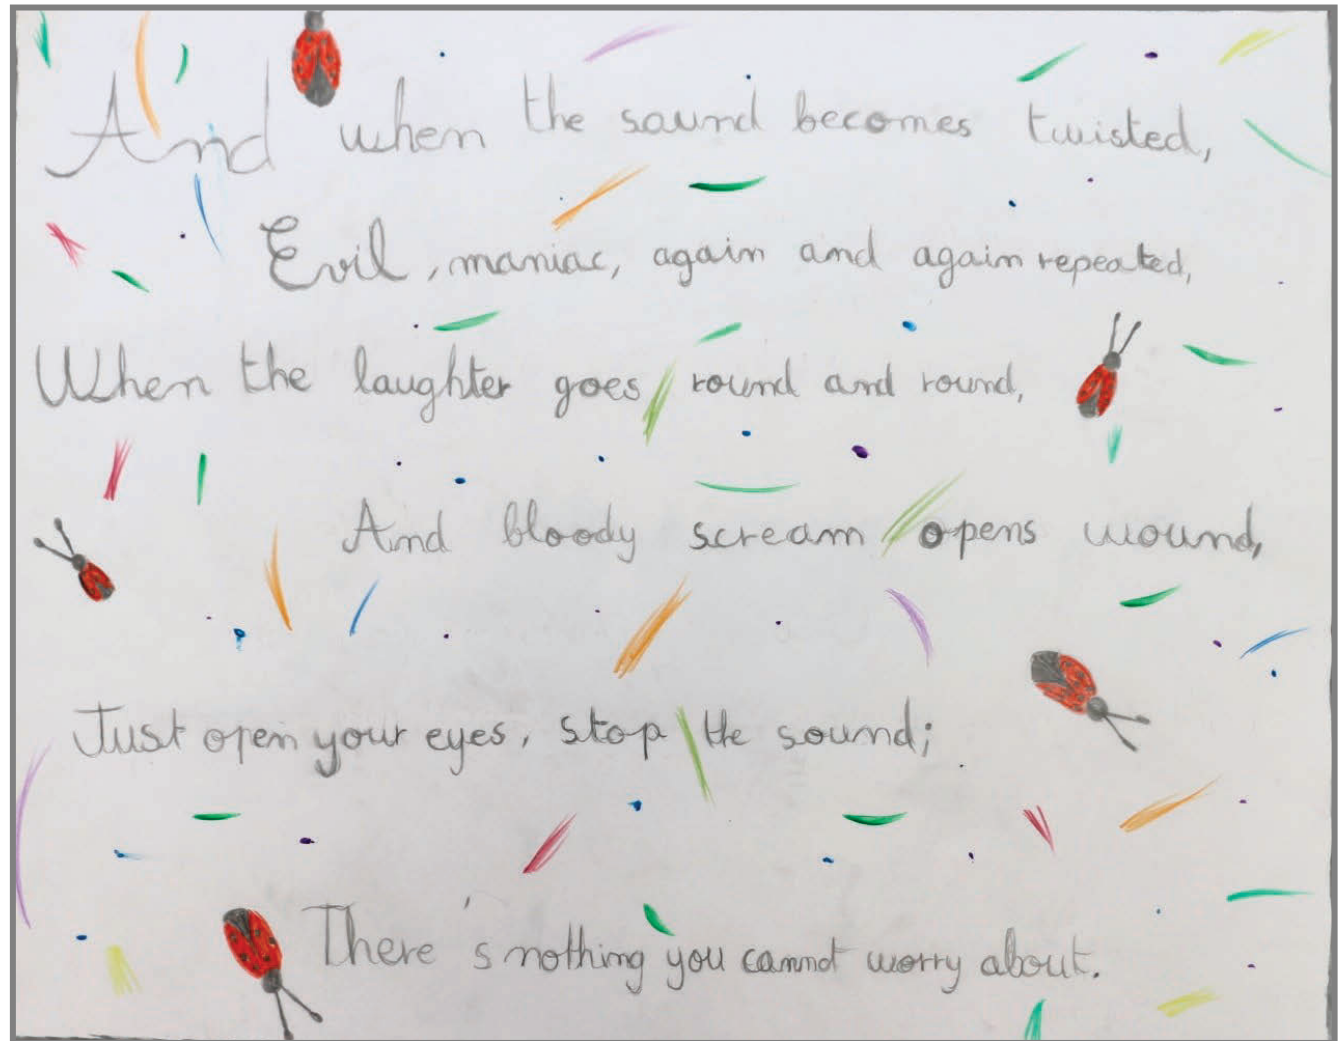 And when the sound becomes twisted,
Evil, maniac, again and again repeated,
When the laughter goes round and round,
And bloody scream opens wound,
Just open your eyes, stop the sound;
There's nothing you cannot worry about.